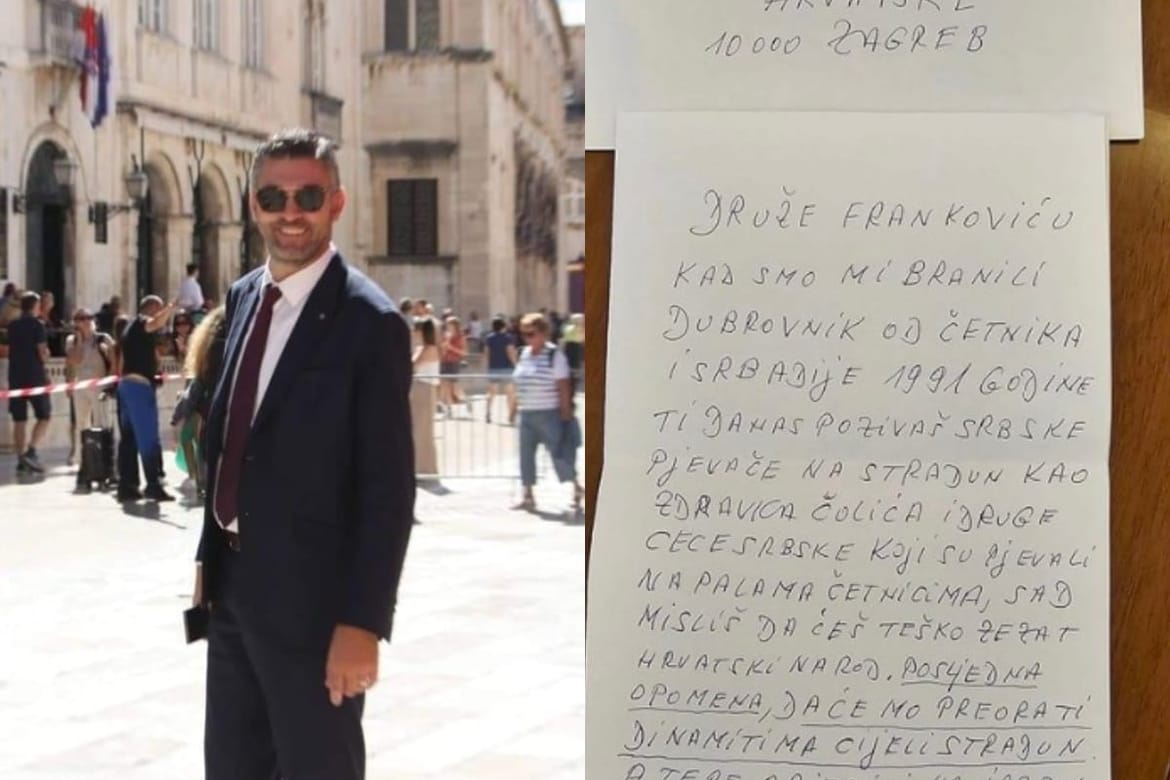 10000 ZAGREB
DRUŽE FRANKOVIĆU
KAD SMO MI BRANILI
DUBROVNIK OD ČETNIKA
I SRBADIJE 1991 GODINE
TI DANAS POZIVAŠ SRBSKE
PJEVAČE NA STRADUN KAO
ZDRAVKA ČOLIĆA I DRUGE
CECE SRBSKE KOJI SU PJEVALI
NA PALAMA ČETNICIMA, SAD
MISLIŠ DA ĆEŠ TEŠKO ZEZAT
HRVATSKI NAROD. POSLJEDNA
OPOMENA, DA ĆE MO PREORATI
DINAMITIMA CIJELI STRADUN.
A TEBE